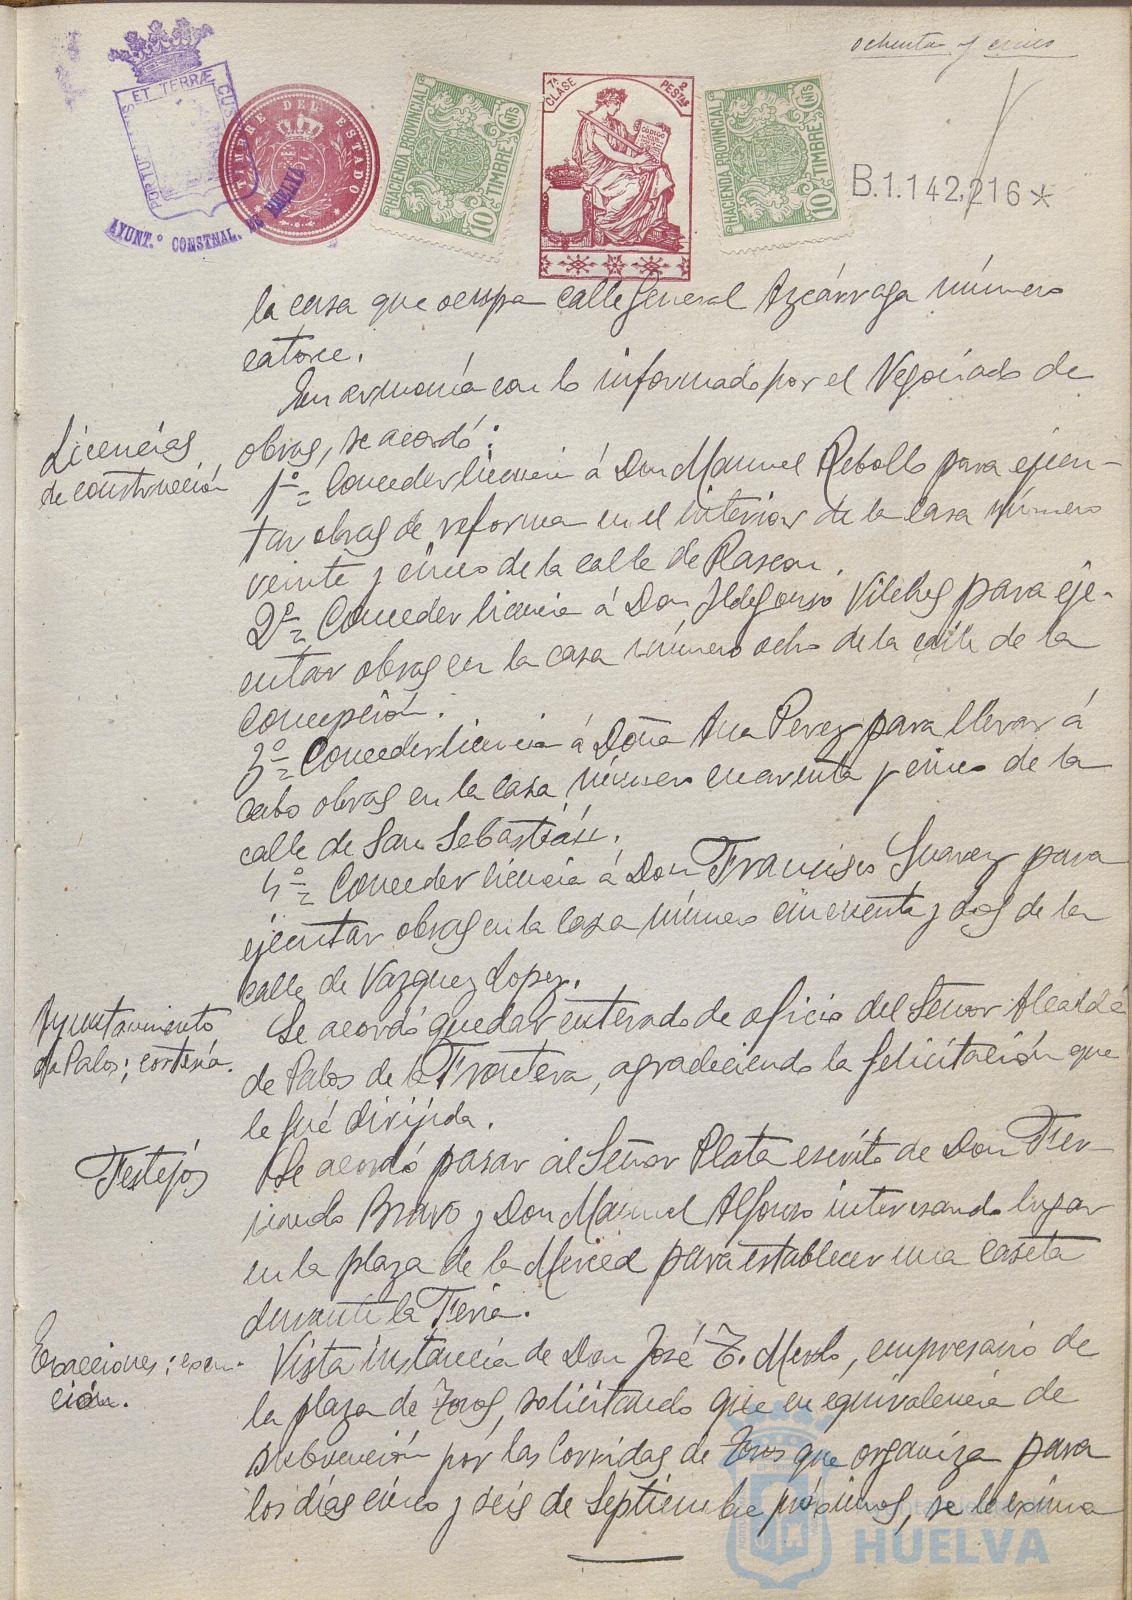 ochenta y cinco
PORTUS ET TERRÆ CUS
AYUNT.º CONSTNAL. DE HUELVA
TIMBRE DEL ESTADO
HACIENDA PROVINCIAL
10 TIMBRE CNTS
7ª CLASE
2 PESTAS
CÓDIGO
HACIENDA PROVINCIAL
10 TIMBRE CNTS
B.1.142,216*
la casa que ocupa calle General Azcárraga número
catorce.
En armonía con lo informado por el Negociado de
Licencias
de construcción
obras, se acordó:
1º= Conceder licencia á Don Manuel Rebollo para ejecu-
tar obras de reforma en el interior de la casa número
veinte y cinco de la calle de Rascon.
2º= Conceder licencia á Don Ildefonso Vilches para eje-
cutar obras en la casa número ocho de la calle de la
Concepción.
3º= Conceder licencia á Doña Ana Perez para llevar á
cabo obras en la casa número cuarenta y cinco de la
calle de San Sebastián.
4º= Conceder licencia á Don Francisco Suarez para
ejecutar obras en la casa número cincuenta y dos de la
calle de Vazquez Lopez.
Ayuntamiento
de Palos; cortesía.
Se acordó quedar enterado de oficio del Señor Alcalde
de Palos de la Frontera, agradeciendo la felicitación que
le fué dirijida.
Festejos
Se acordó pasar al Señor Plata escrito de Don Fer-
nando Bravo y Don Manuel Alfonso interesando lugar
en la plaza de la Merced para establecer una caseta
durante la Feria.
Exacciones; exen-
ción.
Vista instancia de Don José E. Merlo, empresario de
la plaza de Toros, solicitando que en equivalencia de
subvención por las Corridas de Toros que organiza para
los días cinco y seis de Septiembre próximos, se le exima
HUELVA